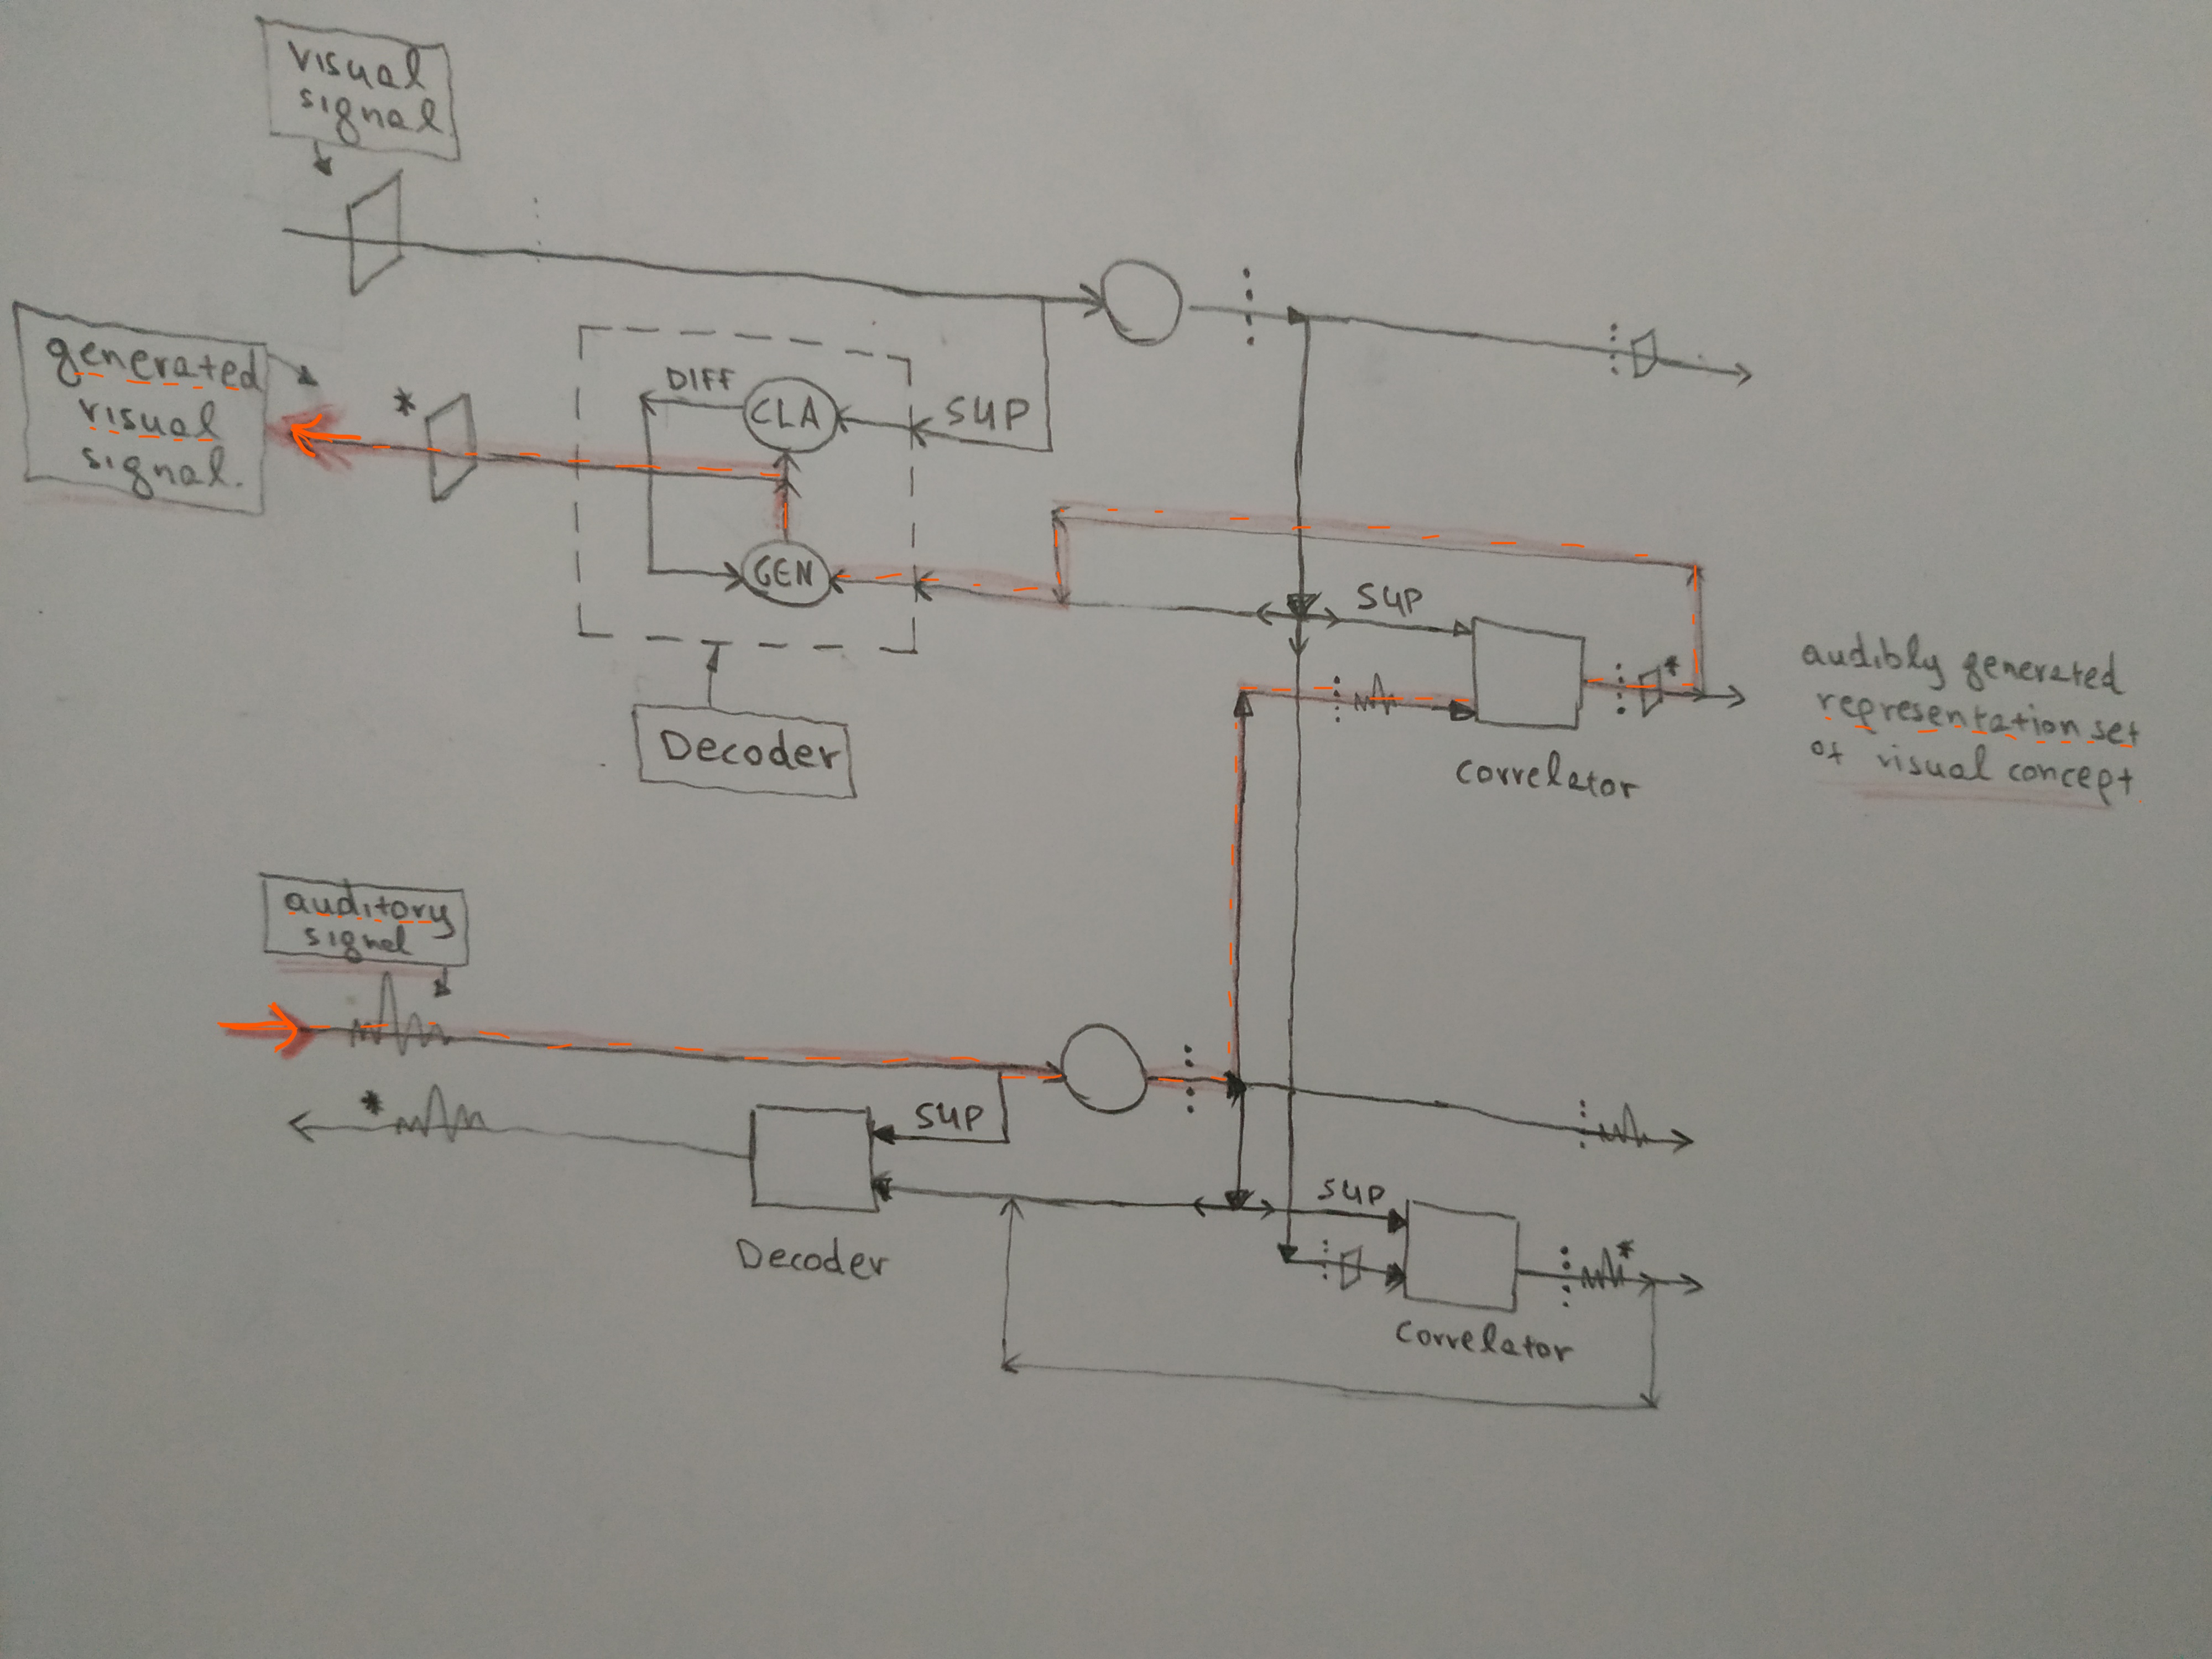 visual
signal
generated
visual
signal.
*
DIFF
CLA
SUP
GEN
SUP
*
Decoder
Correlator
audibly generated
representation set
of visual concept
auditory
signal
*
SUP
Decoder
SUP
*
Correlator